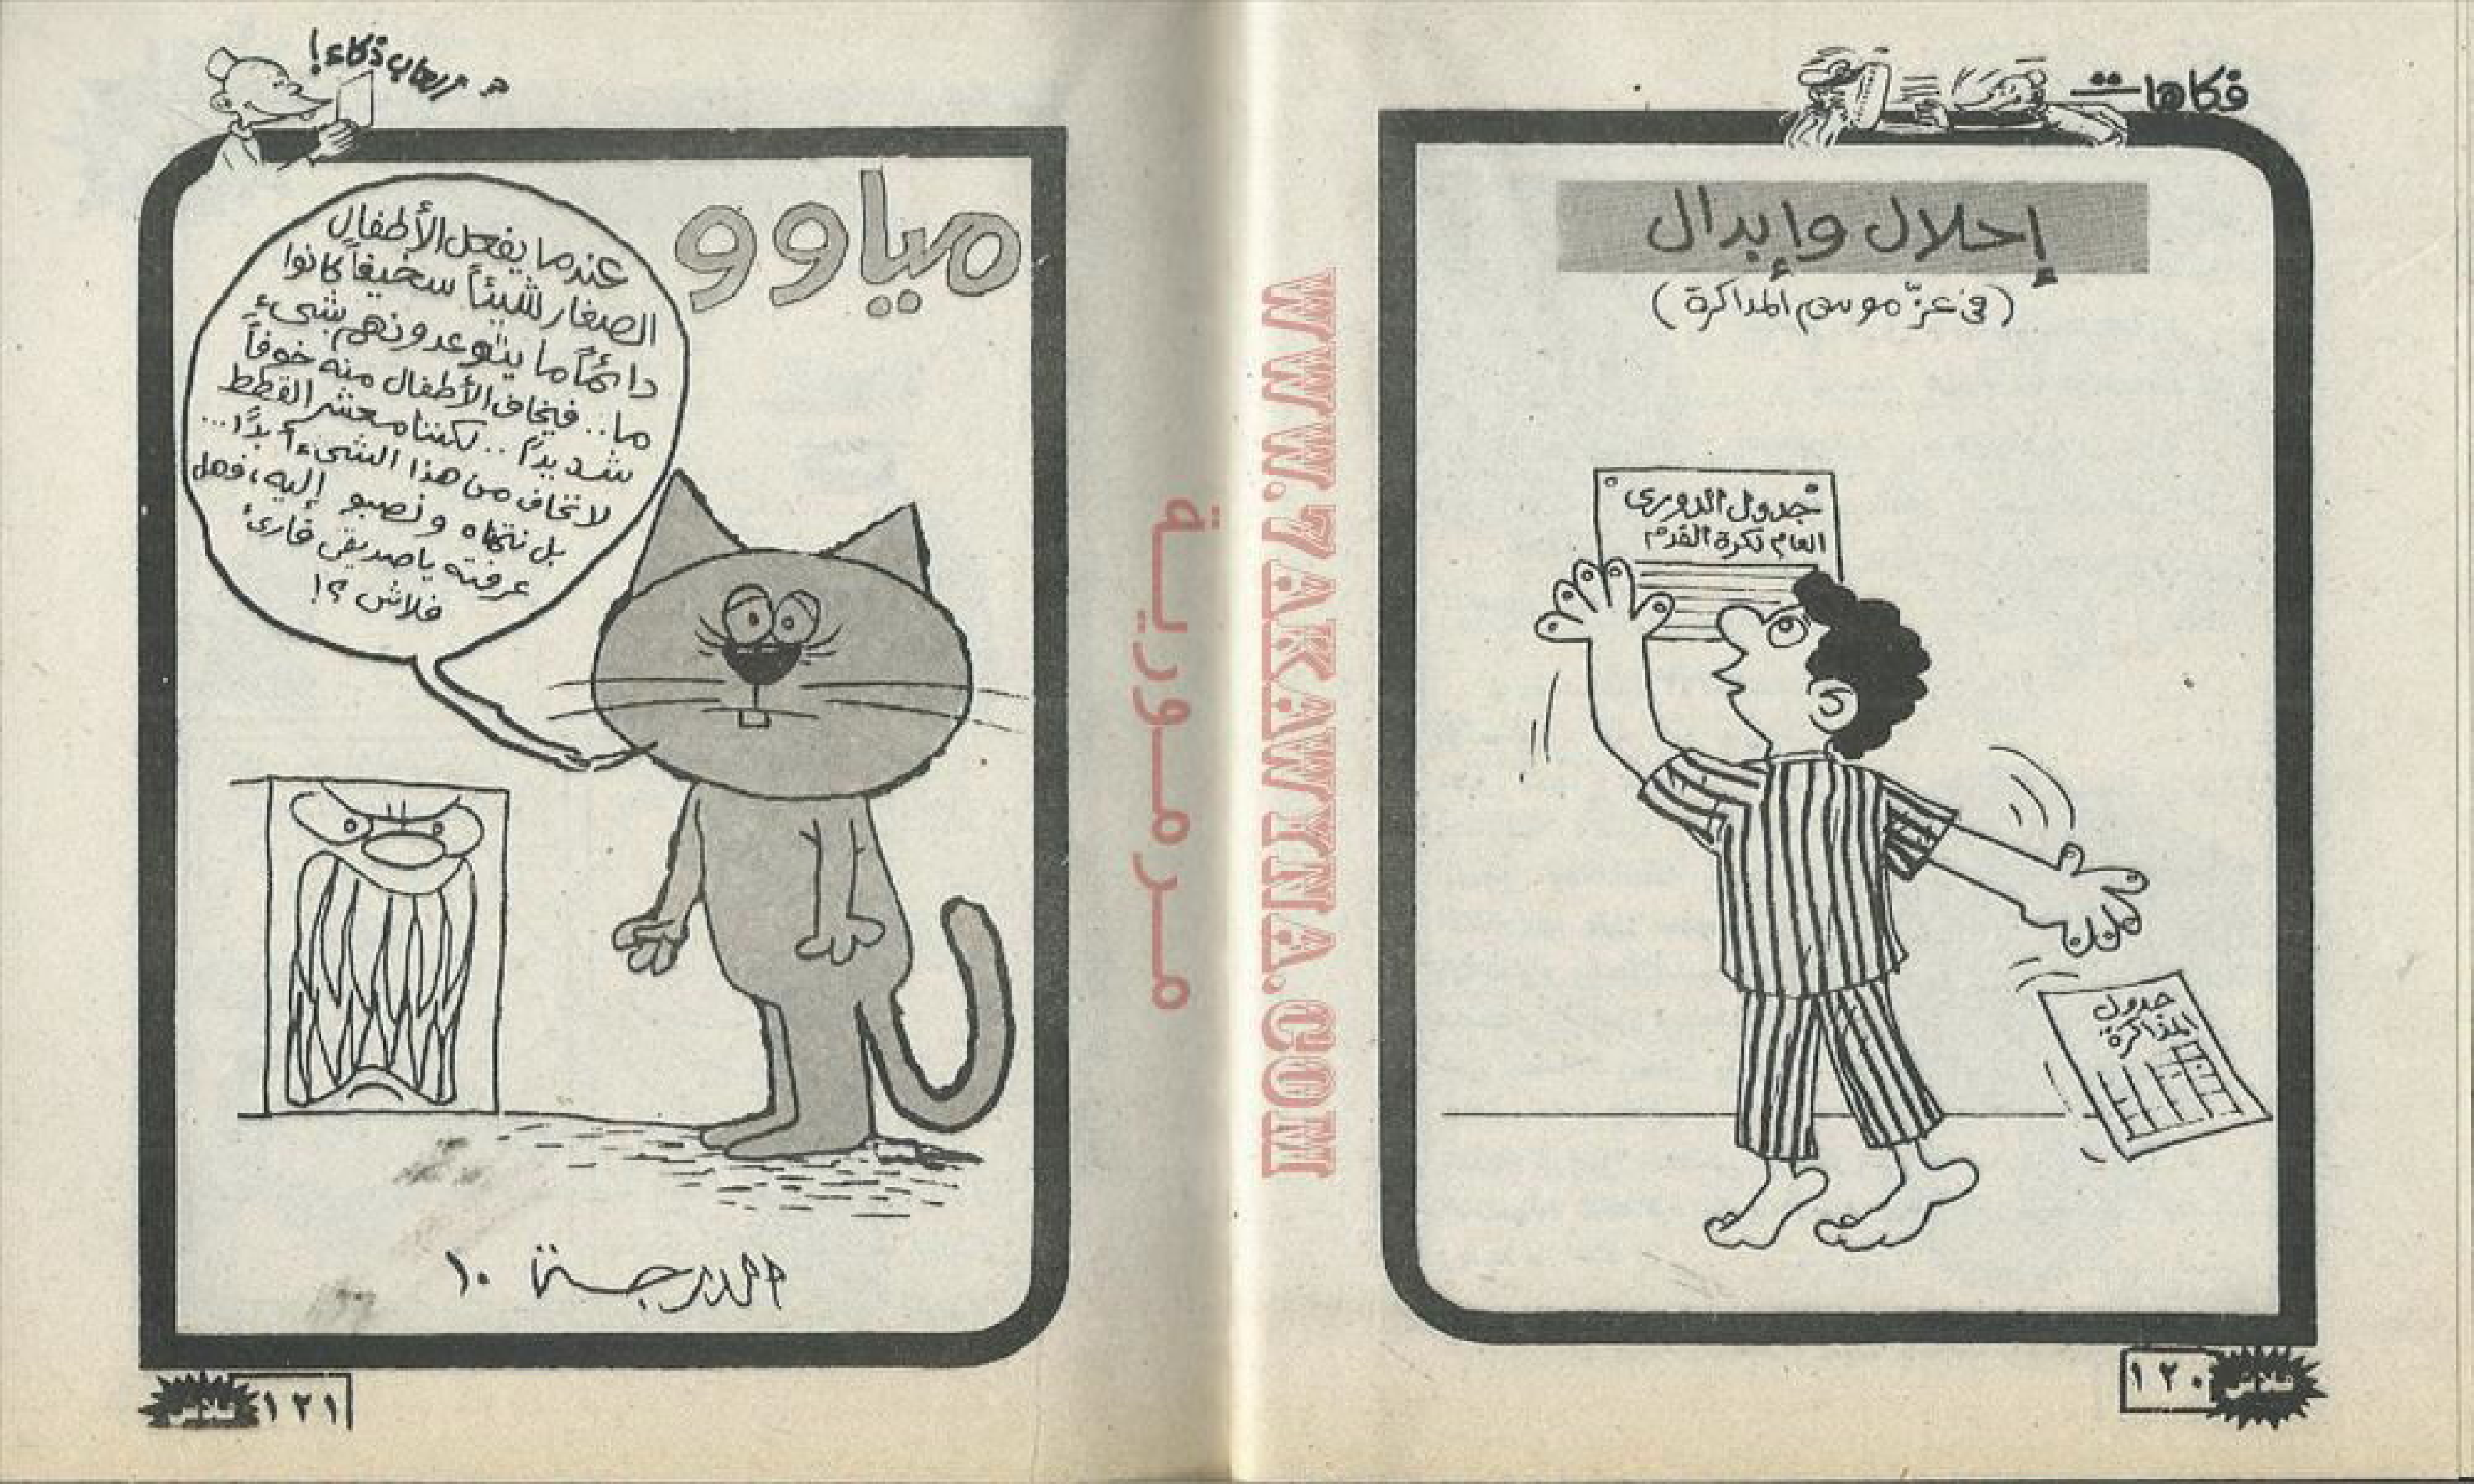 فكاهات
إحلال وإبدال
(في عزّ موسم المذاكرة)
جدول الدورى
العام لكرة القدم
جدول
المذاكرة
١٢٠
فلاش
WWW.7AKAWYNA.COM
مرمورية
ألعاب ذكاء!
مياوو
عندما يفعل الأطفال
الصغار شيئاً سخيفاً كانوا
دائماً ما يتوعدونهم بشىء
ما.. فيخاف الأطفال منه خوفاً
شديداً.. لكننا معشر القطط
لا نخاف من هذا الشىء أبداً...
بل نتمناه ونصبو إليه، فهل
عرفته يا صديقى قارئ
فلاش ؟!
الدرجة ١٠
١٢١
فلاش